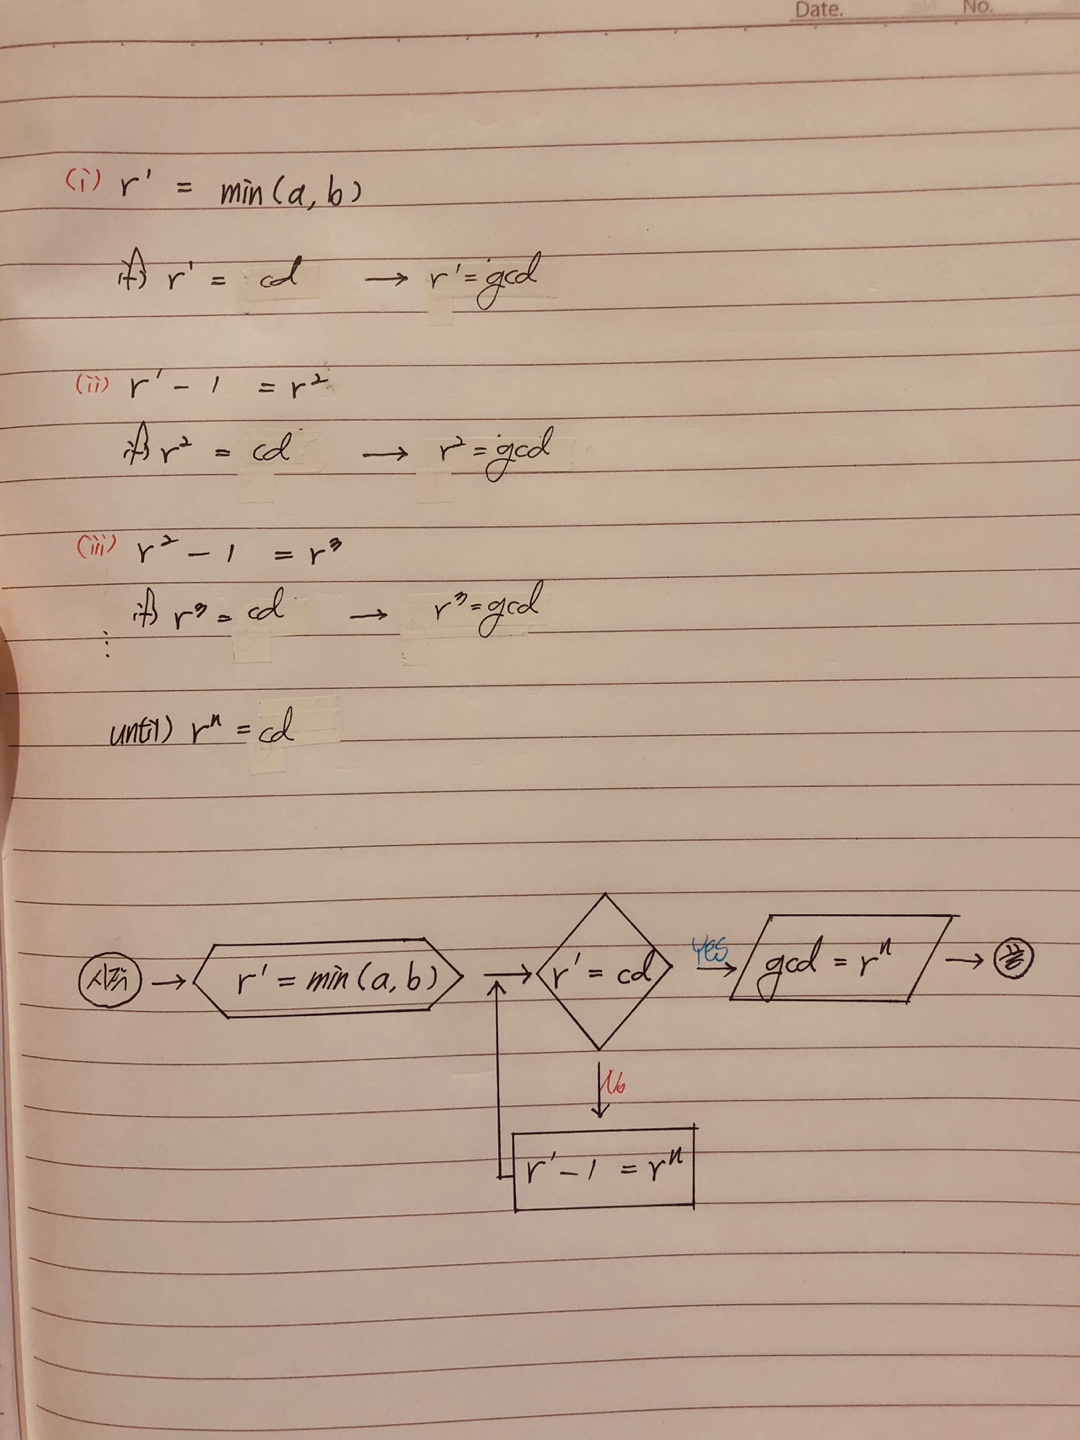 Date. No.
(i) r' = min(a, b)
if r' = cd → r' = gcd
(ii) r' - 1 = r²
if r² = cd → r² = gcd
(iii) r² - 1 = r³
if r³ = cd → r³ = gcd
⋮
until rⁿ = cd
시작 → r' = min(a, b) → r' = cd YES → gcd = rⁿ → 끝
No
r' - 1 = rⁿ